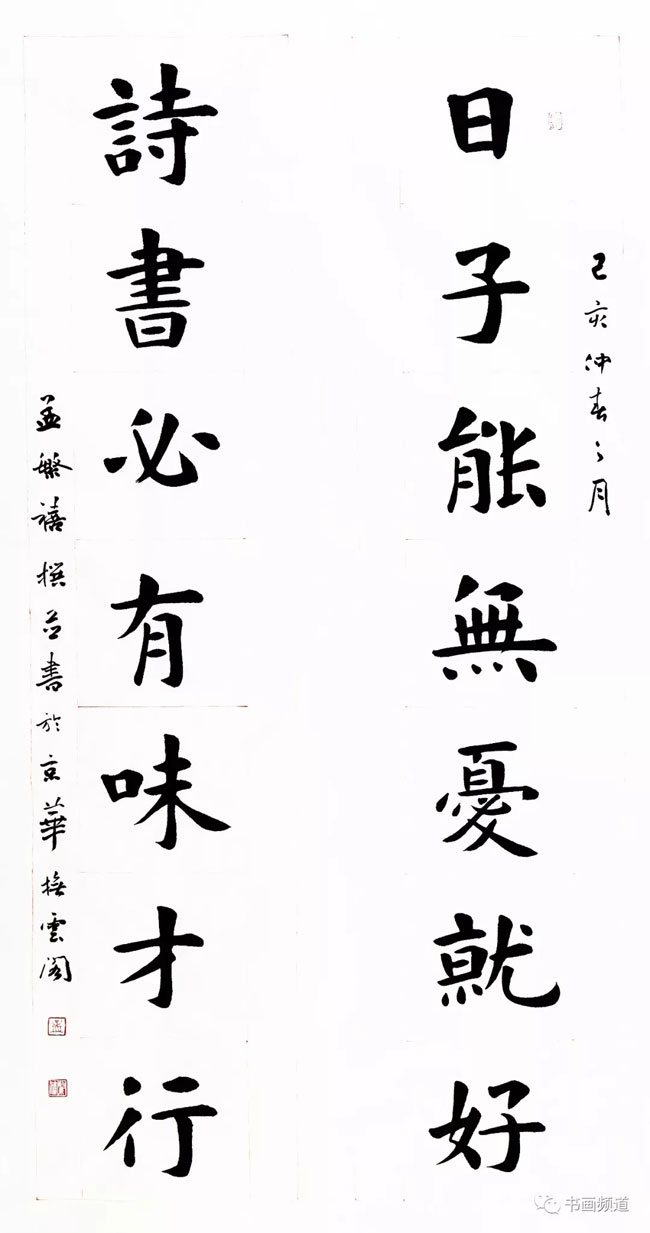 己亥仲春之月
日子能無憂就好
詩書必有味才行
孟繁禧撰并書於京華撫雲閣
孟
书画频道